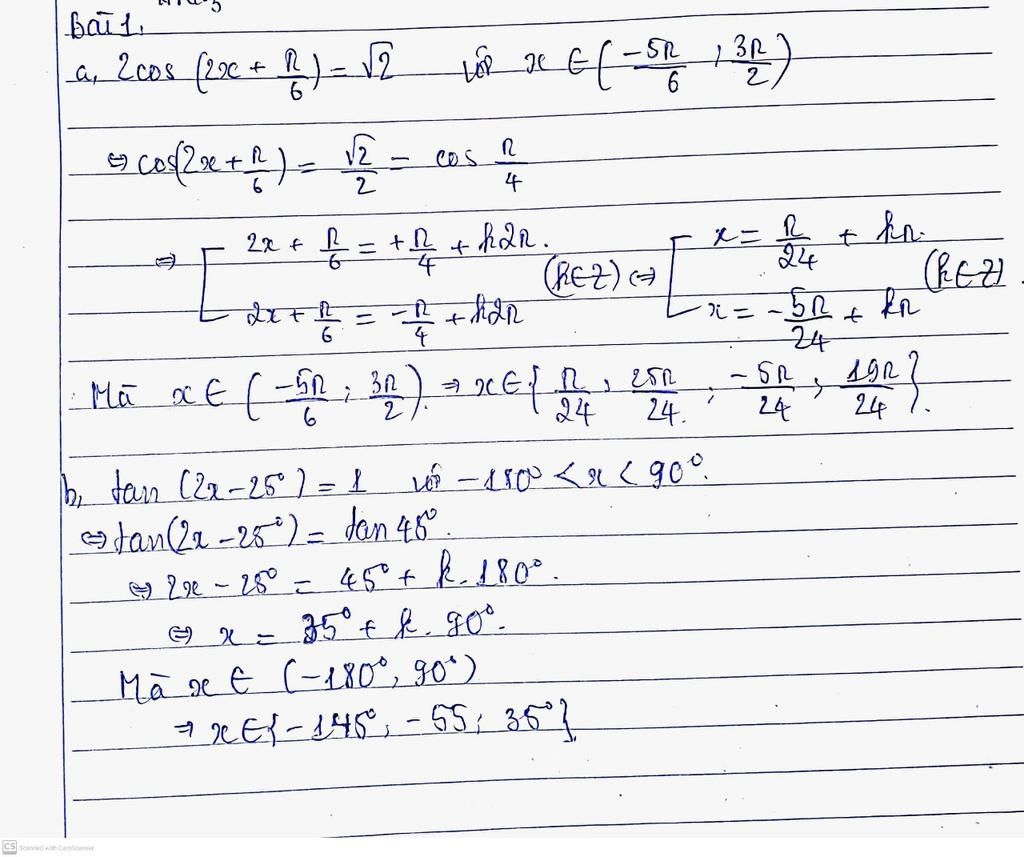 Bài 1.
a, 2cos (2x + π/6) = √2 với x ∈ (-5π/6 ; 3π/2)
⇔ cos(2x + π/6) = √2/2 = cos π/4
⇔ [ 2x + π/6 = +π/4 + k2π. (k∈Z) ⇔ [ x = π/24 + kπ. (k∈Z)
2x + π/6 = -π/4 + k2π x = -5π/24 + kπ
Mà x ∈ (-5π/6 ; 3π/2). ⇒ x∈{ π/24 ; 25π/24 ; -5π/24 ; 19π/24 }.
b, tan (2x - 25°) = 1 với -180° < x < 90°.
⇔ tan(2x - 25°) = tan 45°.
⇔ 2x - 25° = 45° + k.180°.
⇔ x = 35° + k.90°.
Mà x ∈ (-180°, 90°)
⇒ x∈{-145°; -55; 35°}.
CS Scanned with CamScanner